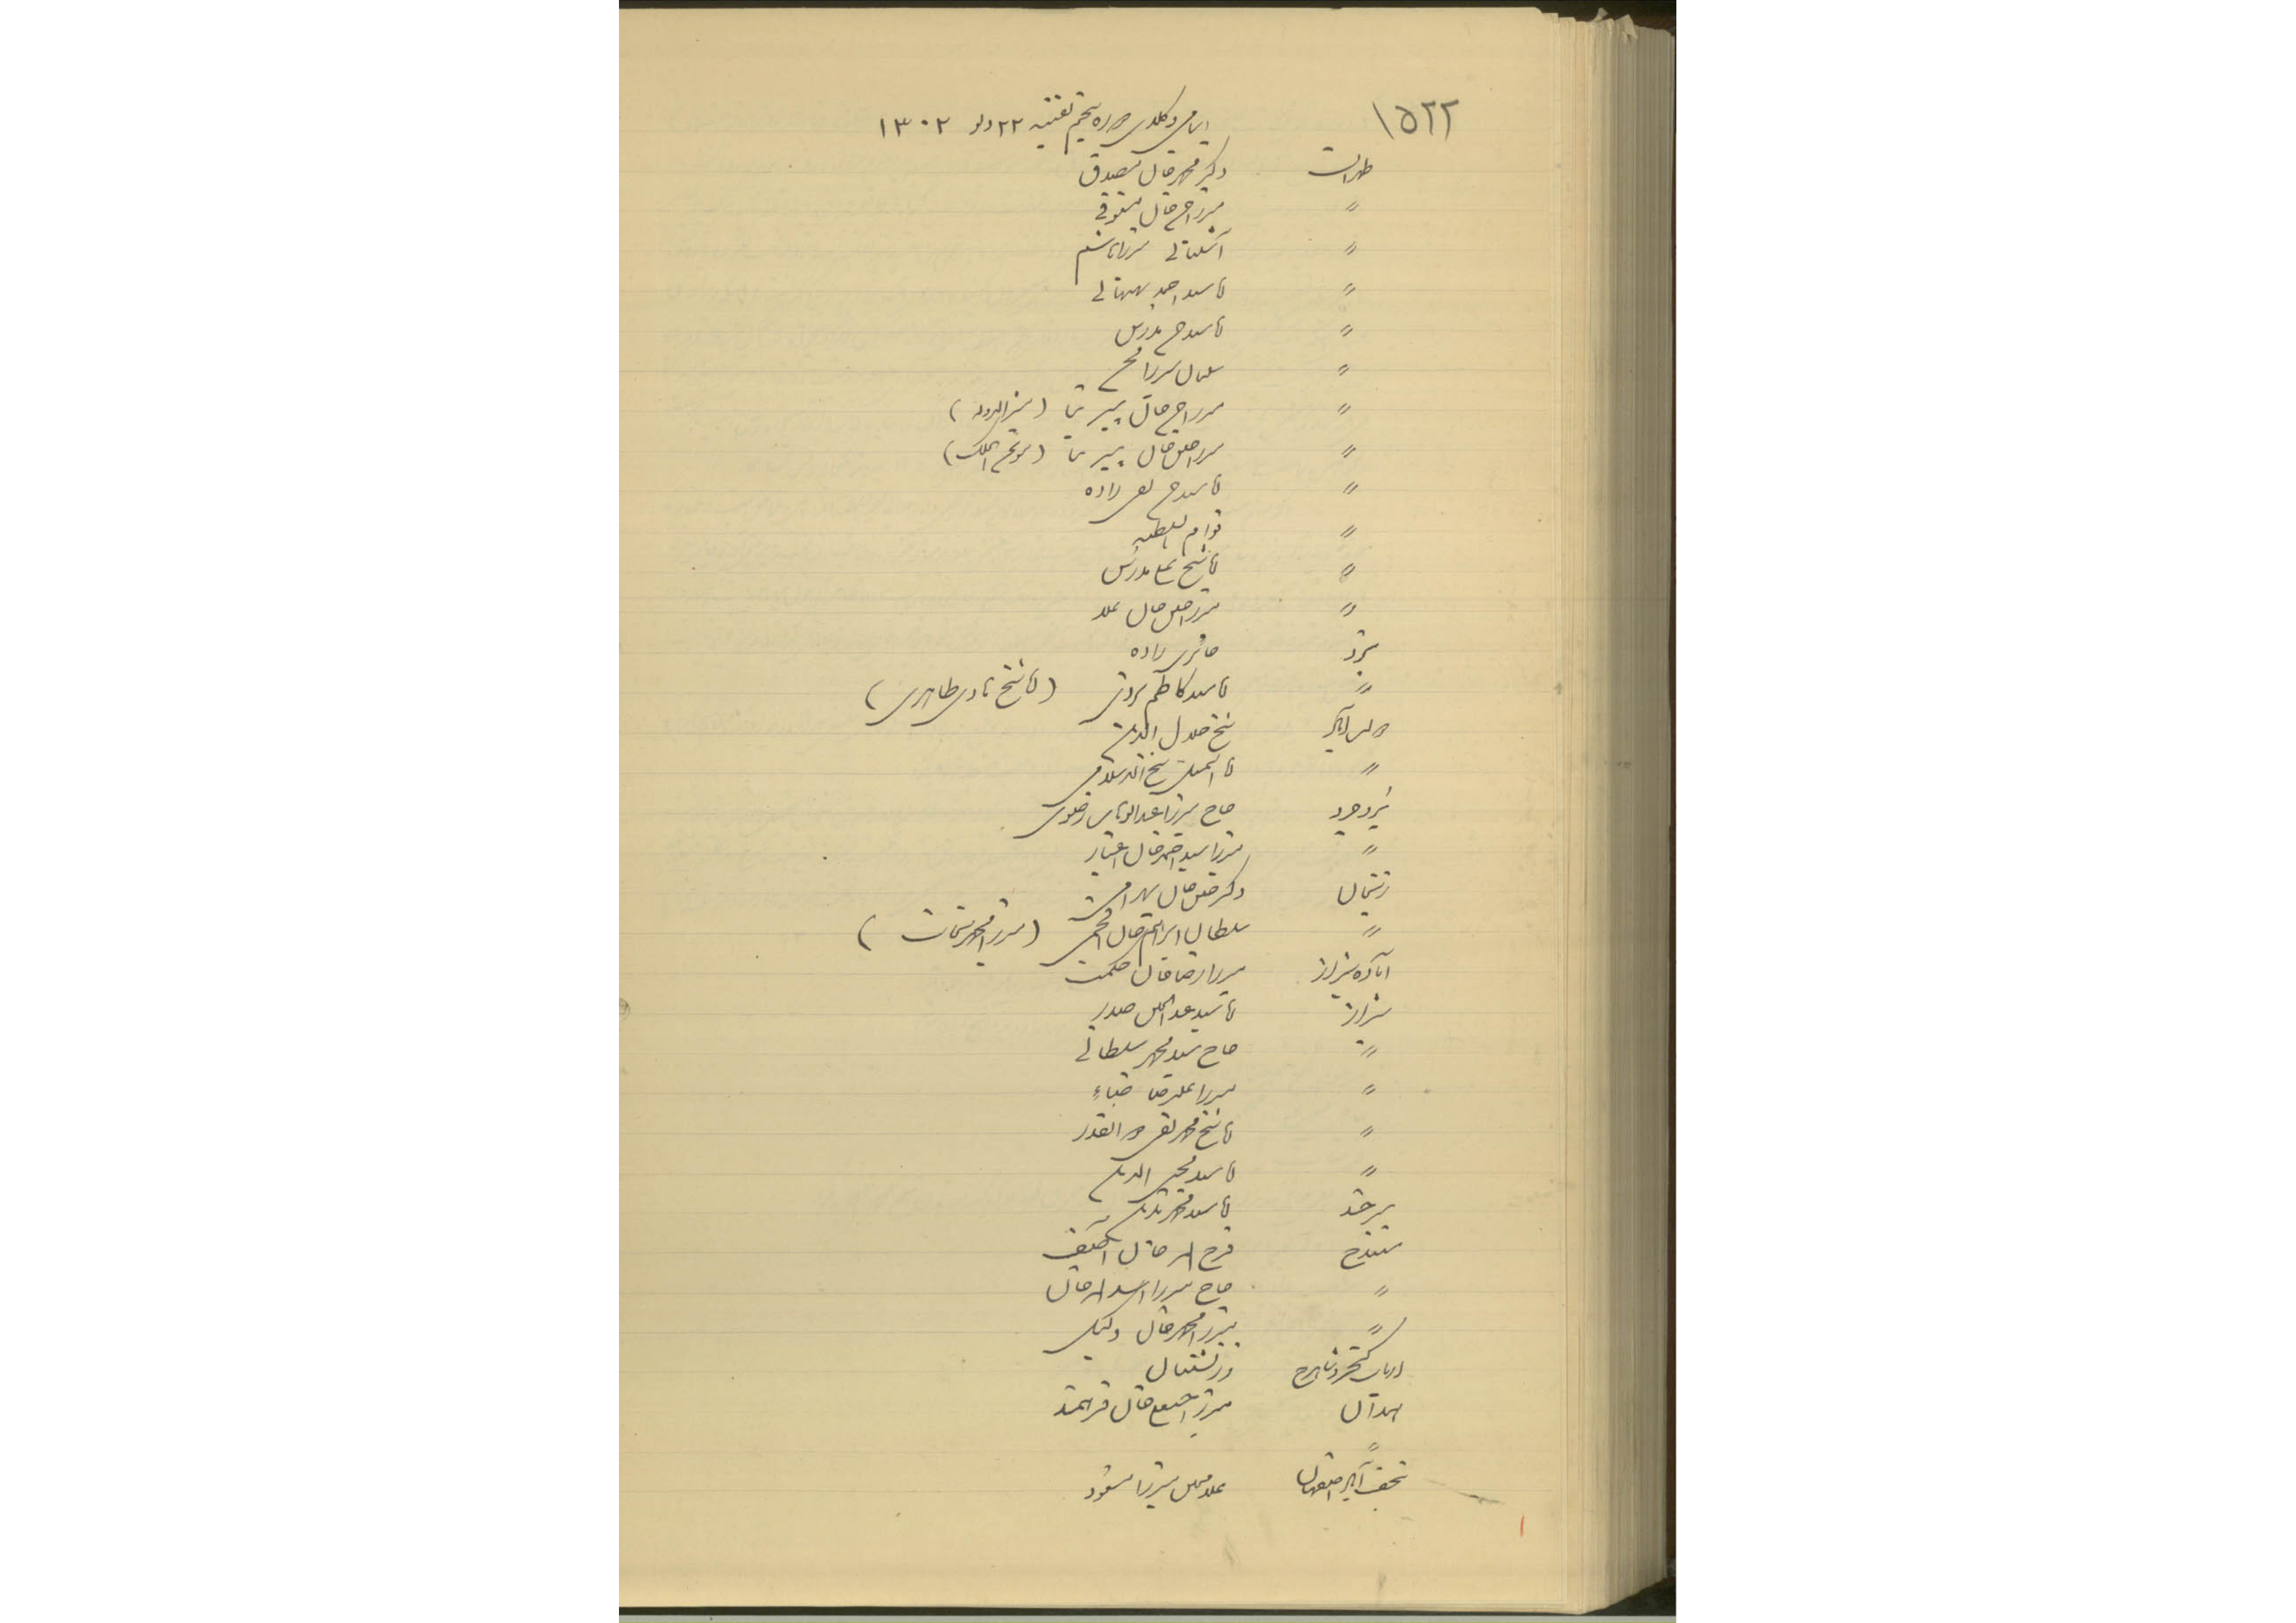 ۱۵۲۲
اسامی وکلای دوره پنجم تقنینیه ۲۲ دلو ۱۳۰۲
طهران دکتر محمد خان مصدق
〃 میرزا حسن خان مستوفی
〃 آشتیانی میرزا هاشم
〃 آسید احمد بهبهانی
〃 آسید حسن مدرس
〃 سلیمان میرزا محسن
〃 میرزا حسن خان پیرنیا (مشیرالدوله)
〃 میرزا حسین خان پیرنیا (موتمن الملک)
〃 آسید حسن تقی زاده
〃 قوام السلطنه
〃 آشیخ علی مدرس
〃 میرزا حسین خان علاء
یزد حائری زاده
〃 آسید کاظم یزدی (آشیخ هادی طاهری)
شیخ جلال الدین
〃
بروجرد حاج میرزا عبدالوهاب رضوی
〃 میرزا سید احمد خان اعتبار
زنجان دکتر حسین خان بهرامی
〃 سلطان ابراهیم خان افخمی (میرزا محمد نجات)
آباده شیراز میرزا رضا خان حکمت
شیراز آسید عبدالحسین صدر
〃 حاج سید محمد سلطانی
〃 میرزا علیرضا ضیاء
〃 آشیخ محمد تقی ذوالقدر
〃 آسید محیی الدین
بیرجند آسید محمد تدین
سنندج فرج اله خان آصف
〃 حاج میرزا اسداله خان
〃 میرزا محمد خان وکیل
ارباب کیخسرو شاهرخ زرتشتیان
همدان خان
〃
نجف آباد اصفهان غلامحسین میرزا مسعود